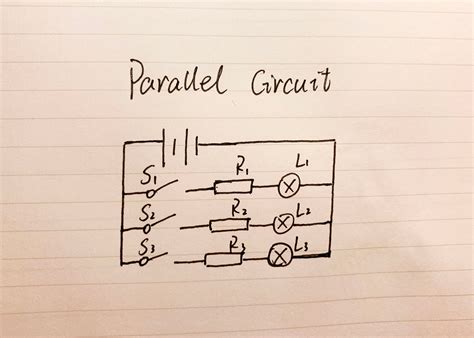 Parallel Circuit
S1 R1 L1
S2 R2 L2
S3 R3 L3